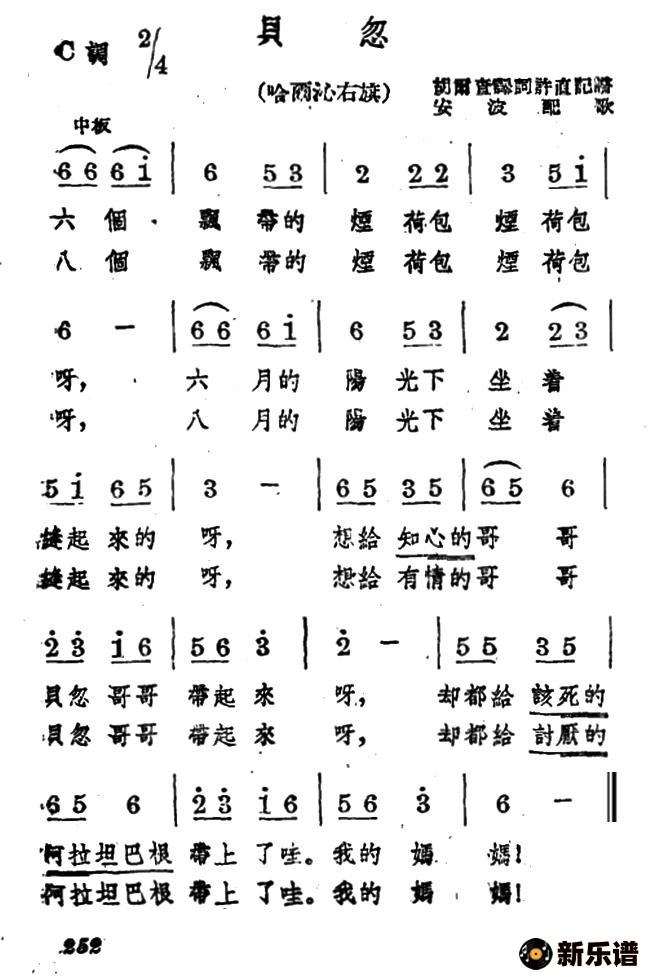 貝 忽
C調 2/4
(哈爾沁右旗)
胡爾查譯詞許直記譜
安波配歌
中板
6 6 6 i | 6 5 3 | 2 2 2 | 3 5 i |
六個 飄帶的 煙荷包 煙荷包
八個 飄帶的 煙荷包 煙荷包
6 — | 6 6 6 i | 6 5 3 | 2 2 3 |
呀, 六月的 陽光下 坐着
呀, 八月的 陽光下 坐着
5 i 6 5 | 3 — | 6 5 3 5 | 6 5 6 |
縫起來的 呀, 想給知心的哥 哥
縫起來的 呀, 想給有情的哥 哥
2̇ 3̇ i 6 | 5 6 3̇ | 2̇ — | 5 5 3 5 |
貝忽哥哥 帶起來 呀, 却都給該死的
貝忽哥哥 帶起來 呀, 却都給討厭的
6 5 6 | 2̇ 3̇ i 6 | 5 6 3̇ | 6 — ‖
阿拉坦巴根 帶上了哇。我的 媽 媽!
阿拉坦巴根 帶上了哇。我的 媽 媽!
252
新乐谱